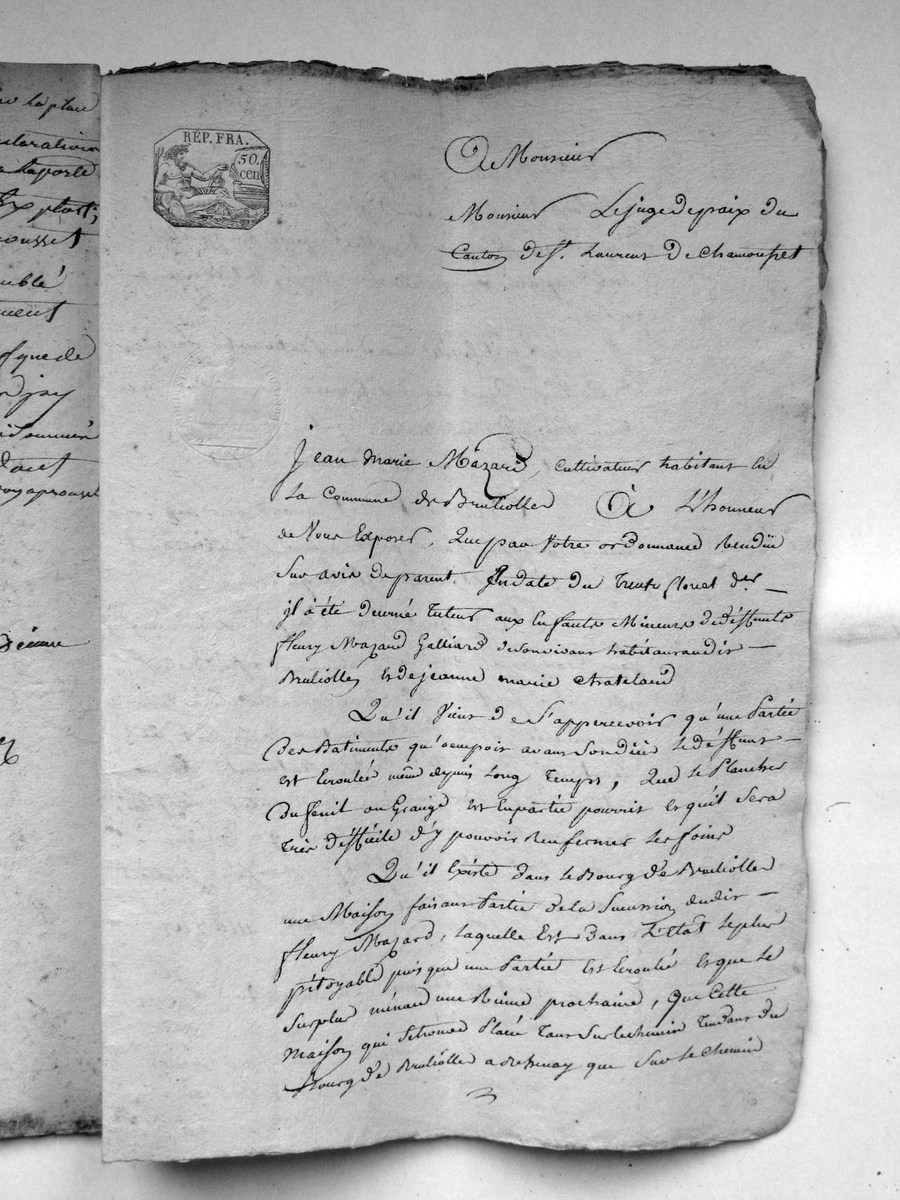 en la place
claration
laporte
plait,
ousset
mblé
ment
que de
jay
dact
RÉP. FRA.
50.
cen
A Monsieur
Monsieur Le juge de paix du
Canton de St. Laurent De Chamousset
Jean Marie Mazard, cultivateur habitant en
La Commune de Brulliolles A L'honneur
de Vous Exposer, Que par Votre ordonnance Rendüe
Sur avis de parent. En date du Trente floreal der —
il à été Nommé Tuteur aux Enfants Mineurs de déffunts
fleury Mazard Galliard de Son vivant habitant audit —
Brulliolles et de jeanne marie Chatelard
Qu'il Vient de S'appercevoir qu'une Partie
Des Batiments qu'ocupoit avant Son décès Le déffunt —
est Ecroulée même depuis Long Temps, Que Le Plancher
Du feuil ou Grange Est En partie pourrit et qu'il Sera
Très difficile d'y pouvoir Renfermer Les foins
Qu'il Existe dans Le Bourg de Brulliolles
une Maison faisant Partie de la Sucession dudit —
fleury Mazard, Laquelle Est dans L'Etat Le plus
pitoyable puis que une Partie Est Ecroulée et que Le
Surplus ménace une Ruine prochaine, Que Cette
Maison qui Se trouve Placée Tant Sur Le chemin Tendant du
Bourg de Brulliolles a Bessenay que Sur Le Chemin